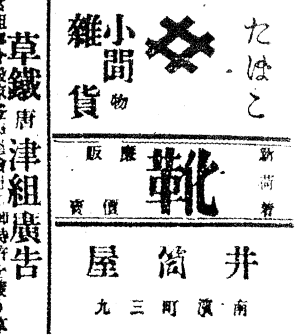 たばこ
小間物
雑貨
新荷着
靴
廉價
販賣
井筒屋
南濱町三九
草鐵唐津組廣告